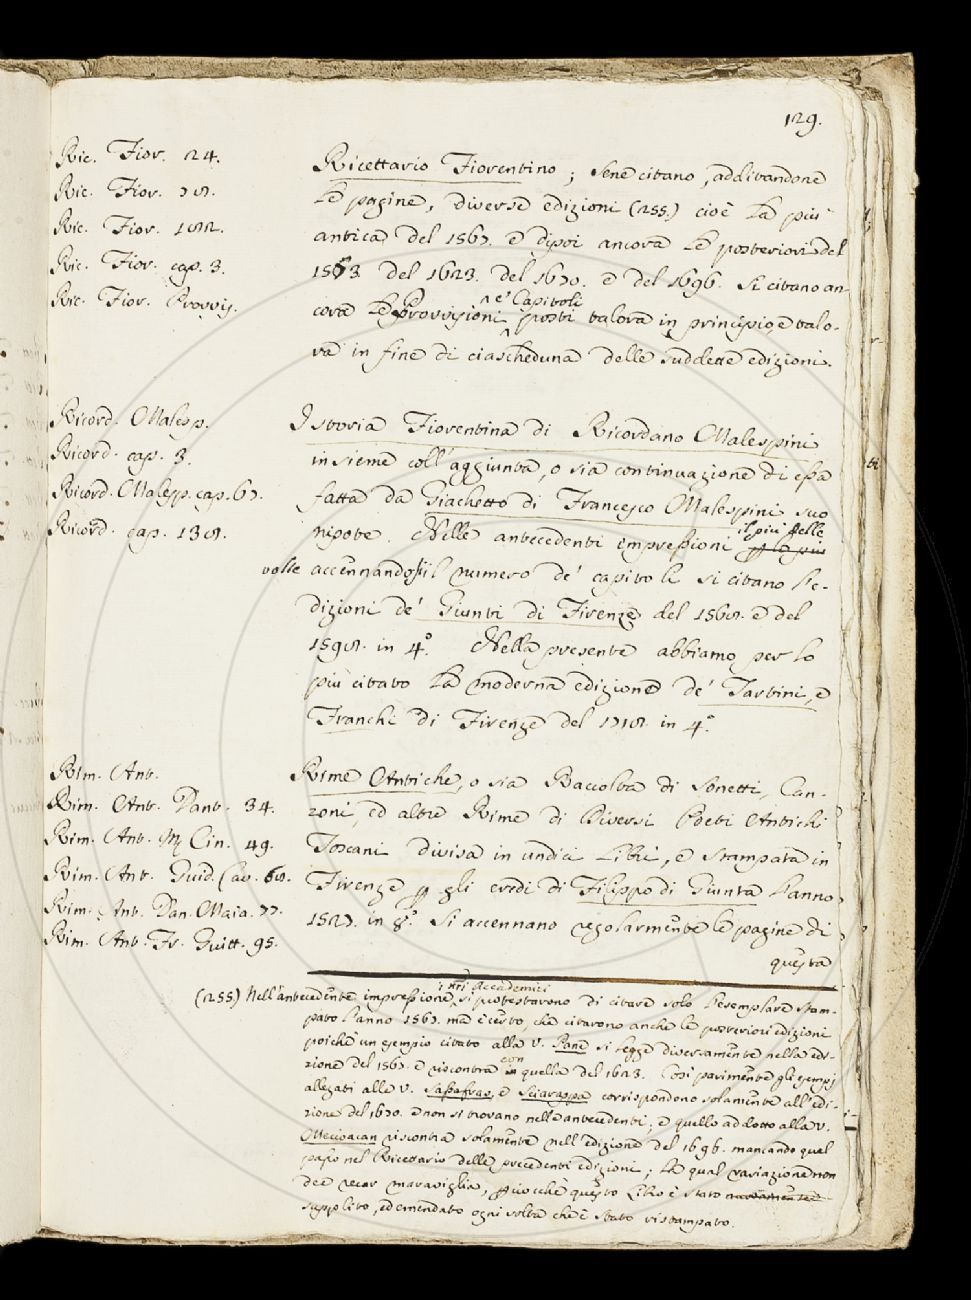 129.
Ric. Fior. 24.
Ric. Fior. 78.
Ric. Fior. 182.
Ric. Fior. cap. 3.
Ric. Fior. Provvis.
Ricettario Fiorentino; Sene citano, additandone
le pagine, diverse edizioni (255.) cioè la più
antica del 1567. e dipoi ancora le posteriori del
1573 del 1623. del 1670. e del 1696. Si citano an-
cora le Provvisioni e' Capitoli posti talora in principio, e talo-
ra in fine di ciascheduna delle suddette edizioni.
Ricord. Malesp.
Ricord. cap. 3.
Ricord. Malesp. cap. 67.
Ricord. cap. 138.
Istoria Fiorentina di Ricordano Malespini
insieme coll' aggiunta, o sia continuazione di essa
fatta da Giachetto di Francesco Malespini suo
nipote. Nelle antecedenti impressioni il più delle
volte accennandosi il numero de' capitoli si citano l'e-
dizioni de' Giunti di Firenze del 1568. e del
1598. in 4.° Nella presente abbiamo per lo
più citato la moderna edizione de' Tartini, e
Franchi di Firenze del 1718. in 4.°
Rim. Ant.
Rim. Ant. Dant. 34.
Rim. Ant. M. Cin. 49.
Rim. Ant. Guid. Cav. 68.
Rim. Ant. Dan. Maia. 77.
Rim. Ant. Fr. Guitt. 95.
Rime Antiche, o sia Raccolta di Sonetti, Can-
zoni, ed altre Rime di Diversi Poeti Antichi
Toscani divisa in undici Libri, e stampata in
Firenze p gli eredi di Filippo di Giunta l'anno
1527. in 8.° Si accennano regolarmente le pagine di
questa
(255) Nell'antecedente impressione i nri Accademici si protestarono di citare solo l'esemplare stam-
pato l'anno 1567. ma è certo, che citarono anche le posteriori edizioni
poichè un esempio citato alla V. Pane si legge diversamente nella edi-
zione del 1567. e riscontra con quella del 1623. Così parimente gli esempj
allegati alle V. Sassafras, e Sciarappa corrispondono solamente all'edi-
zione del 1670. e non si trovano nelle antecedenti; e quello addotto alla V.
Ottecioacan riscontra solamente nell'edizione del 1696. mancando quel
passo nel Ricettario delle precedenti edizioni; la qual variazione non
dee recar maraviglia, p ciocchè questo Libro è stato
supplito, ed emendato ogni volta che è stato ristampato.